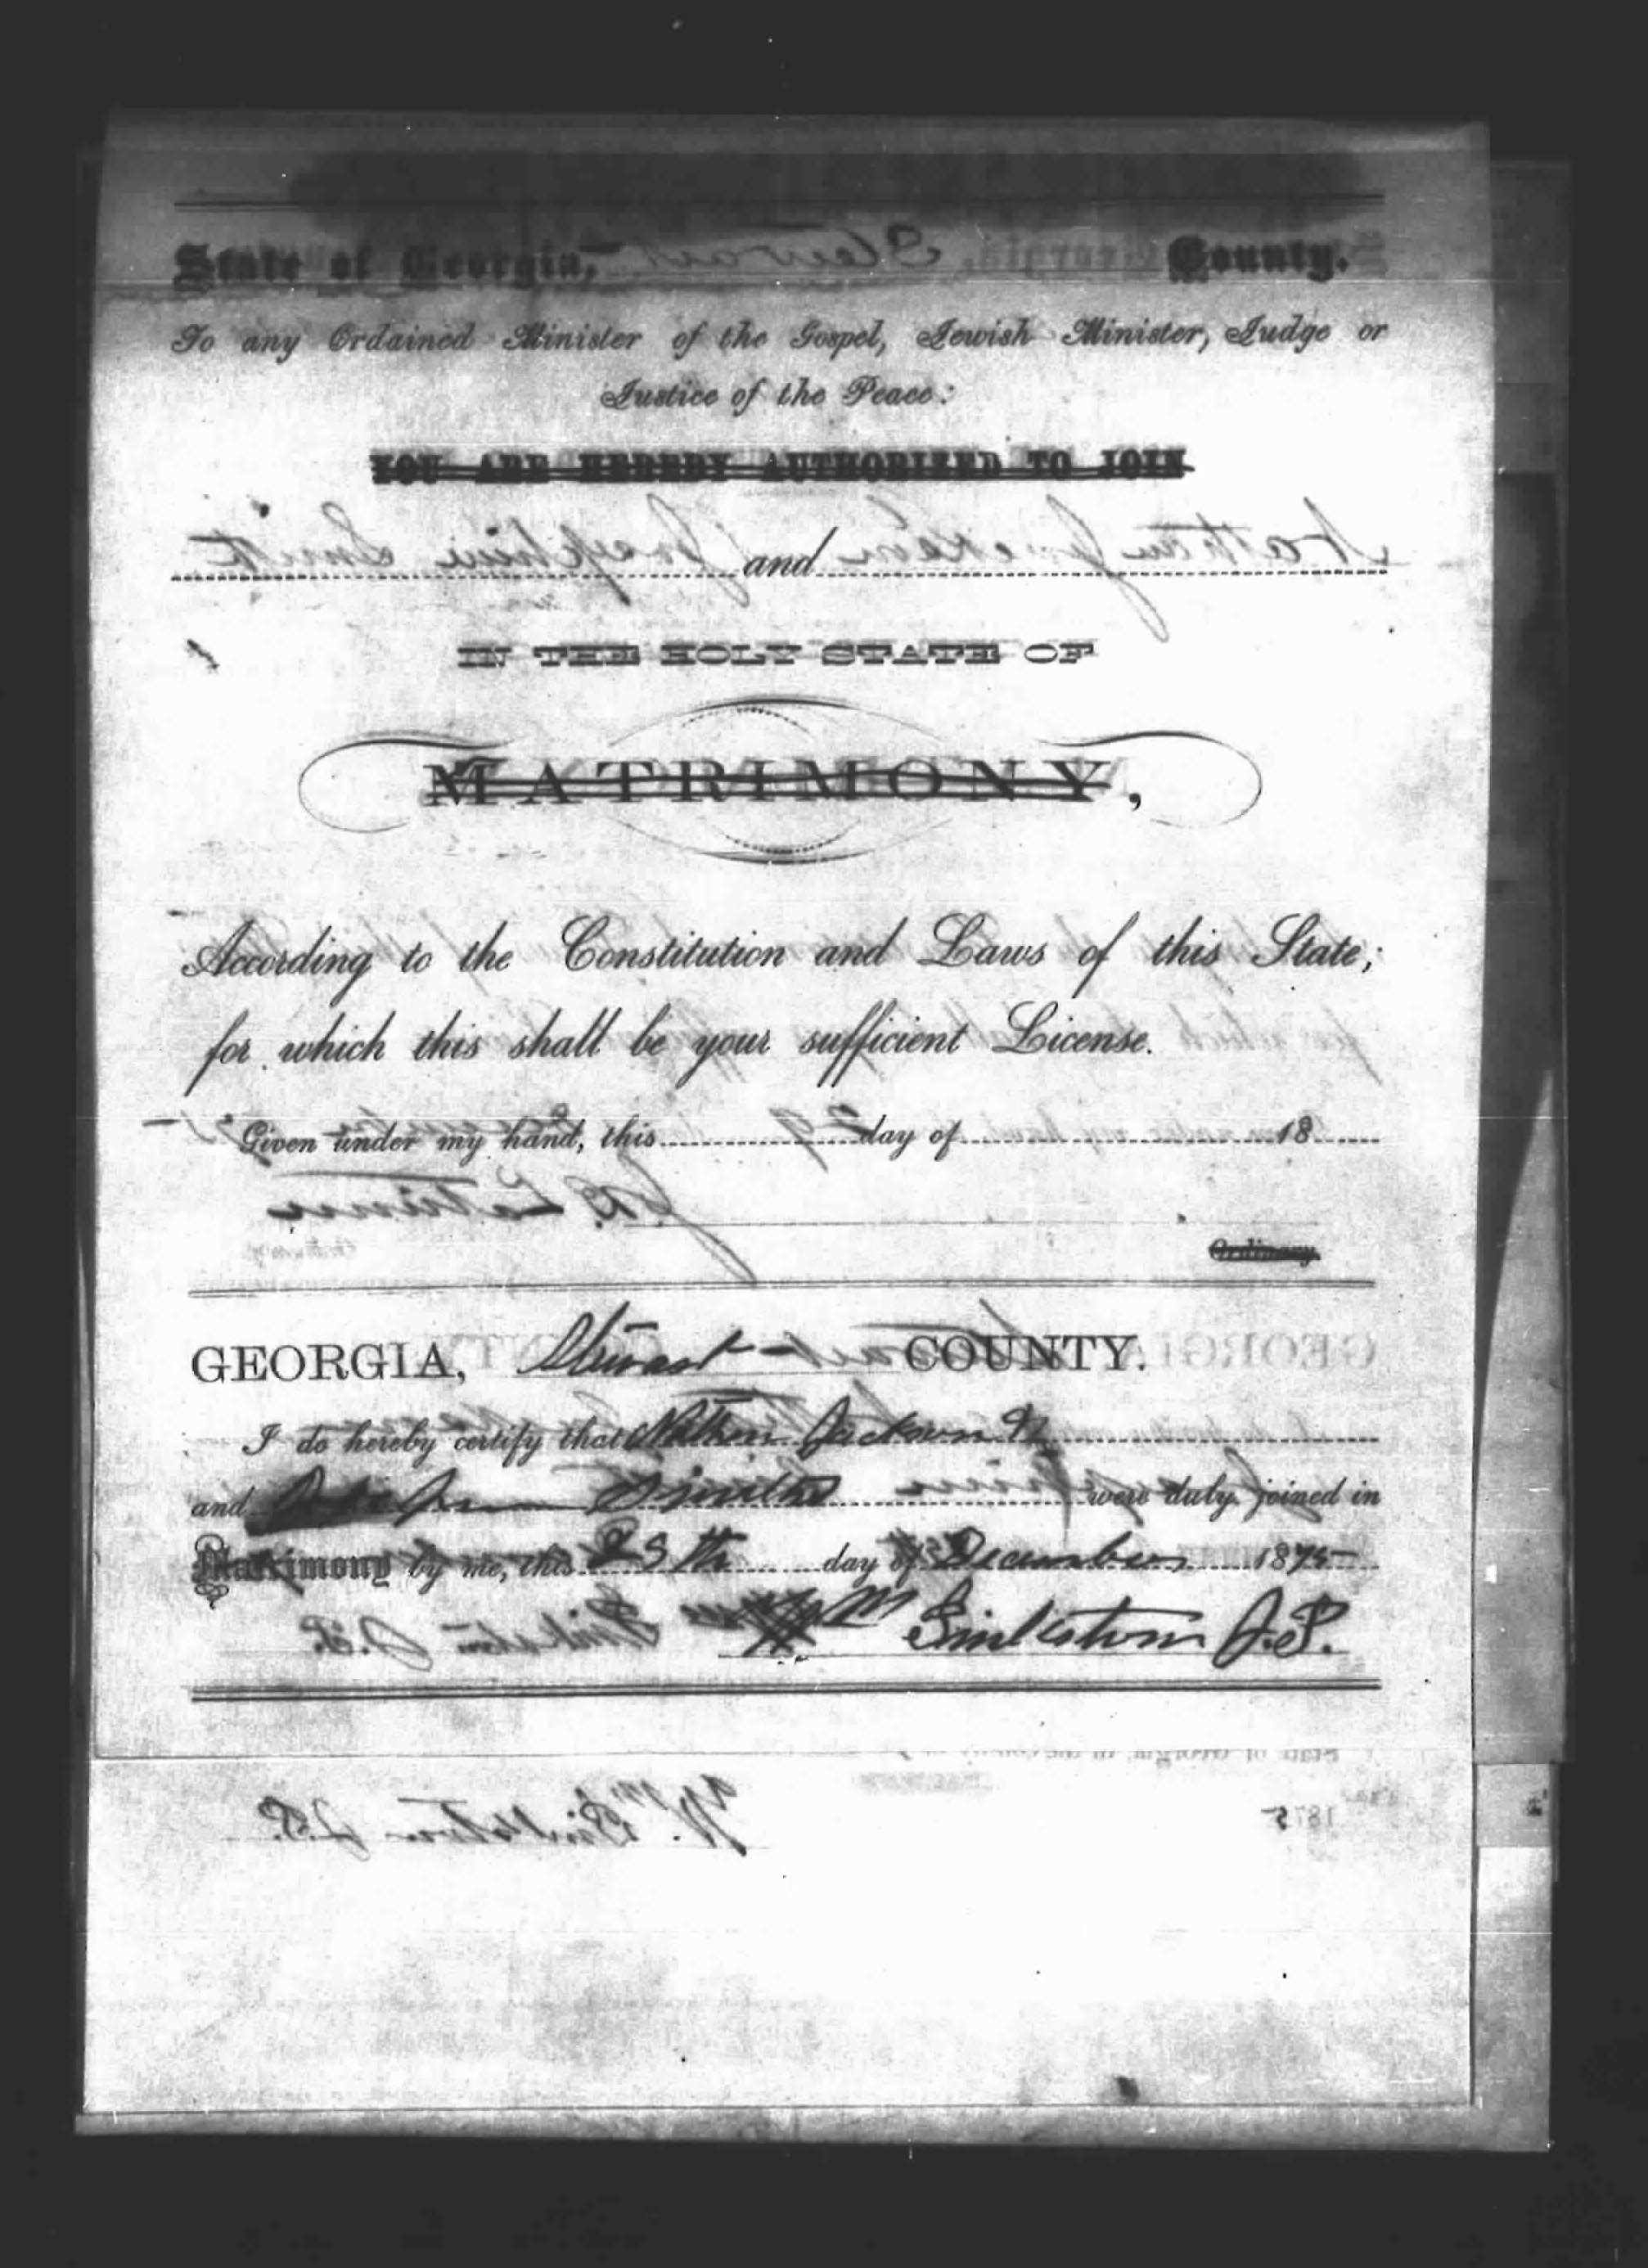 State of Georgia, Stewart County.
To any Ordained Minister of the Gospel, Jewish Minister, Judge or
Justice of the Peace:
YOU ARE HEREBY AUTHORIZED TO JOIN
Nathan Jackson and Josephine Smith
IN THE HOLY STATE OF
MATRIMONY,
According to the Constitution and Laws of this State;
for which this shall be your sufficient License.
Given under my hand, this 29 day of 18
Latimer
Ordinary.
GEORGIA, Stewart COUNTY.
I do hereby certify that Nathan Jackson
and Smith were duly joined in
Matrimony by me, this day of December 1875
Wm Pinkston J.P.
State of Georgia,
1875
Wm. Pinkston J.P.